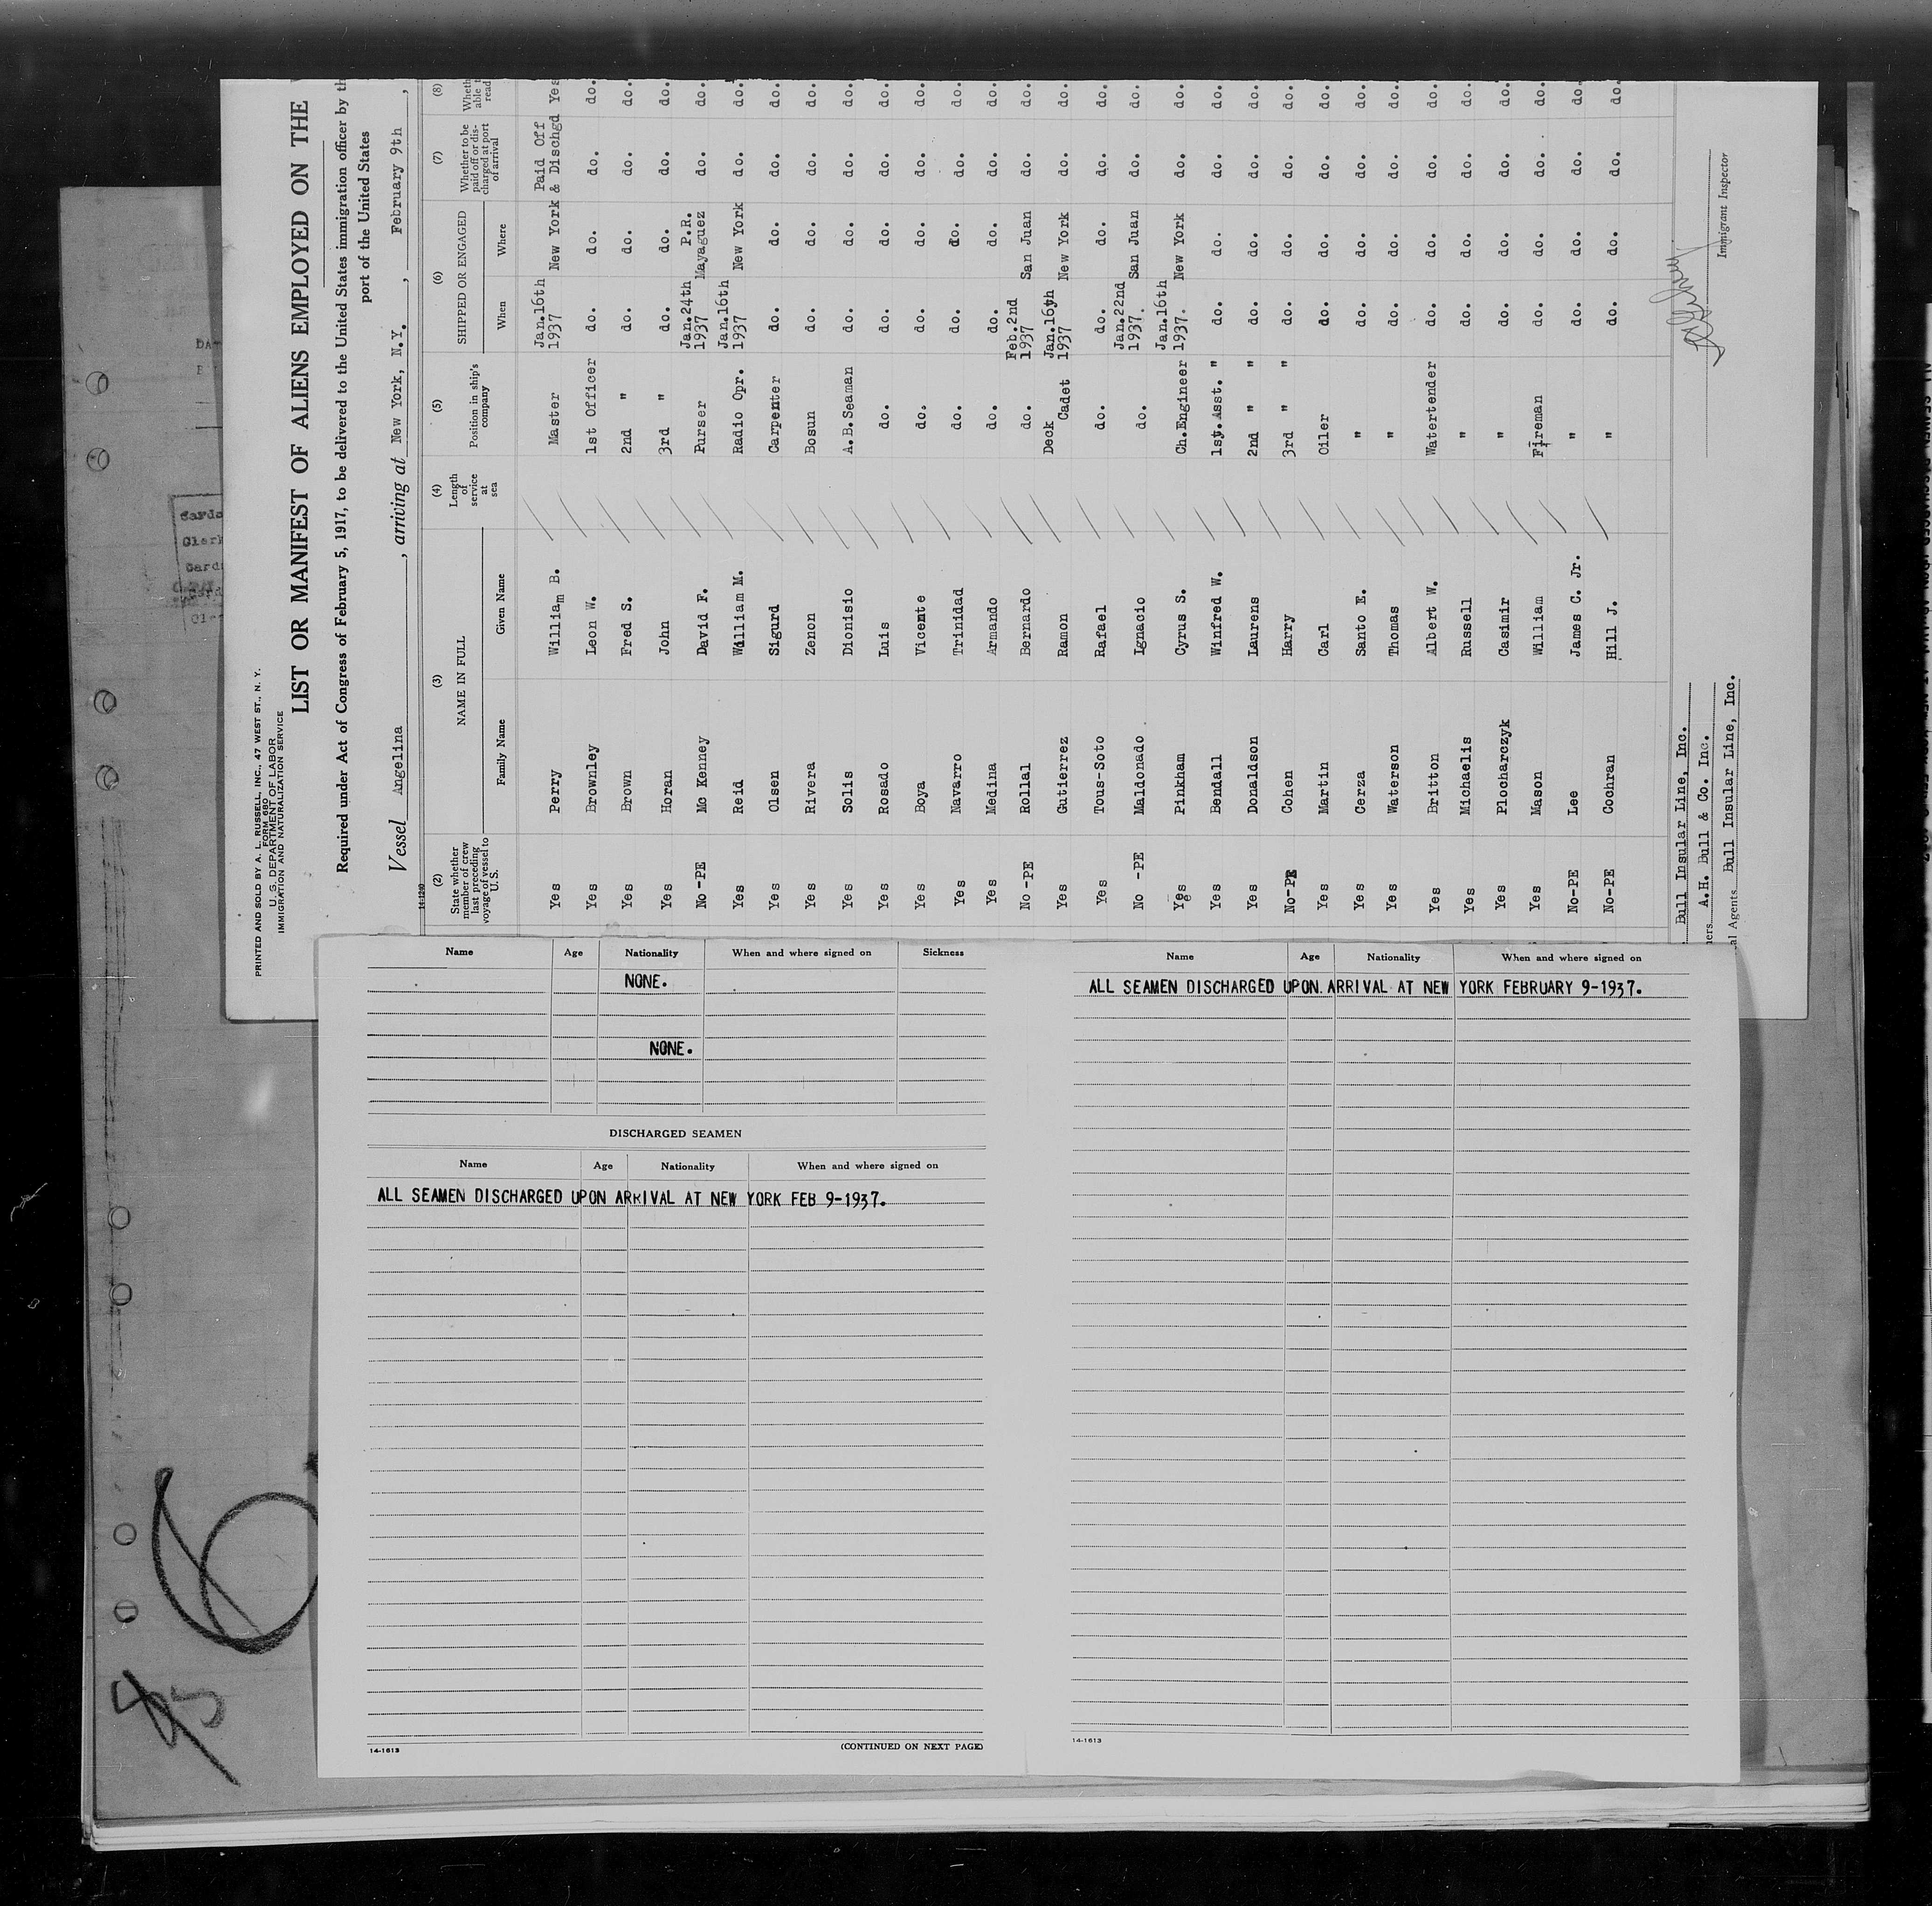 PRINTED AND SOLD BY A. L. RUSSELL, INC., 47 WEST ST., N. Y.
FORM 680
U. S. DEPARTMENT OF LABOR
IMMIGRATION AND NATURALIZATION SERVICE
LIST OR MANIFEST OF ALIENS EMPLOYED ON THE
Required under Act of Congress of February 5, 1917, to be delivered to the United States immigration officer by th
port of the United States
Vessel Angelina, arriving at New York, N.Y., February 9th,
14-1240
(2) (3) (4) (5) (6) (7) (8)
State whether member of crew last preceding voyage of vessel to U.S. NAME IN FULL Length of service at sea Position in ship's company SHIPPED OR ENGAGED Whether to be paid off or discharged at port of arrival Wheth able t read
Family Name Given Name When Where
Yes Perry William B. Master Jan.16th 1937 New York Paid Off & Dischgd Yes
Yes Brownley Leon W. 1st Officer do. do. do. do.
Yes Brown Fred S. 2nd " do. do. do. do.
Yes Horan John 3rd " do. do. do. do.
No-PE Mc Kenney David F. Purser Jan.24th 1937 P.R. Mayaguez do. do.
Yes Reid William M. Radio Opr. Jan.16th 1937 New York do. do.
Yes Olsen Sigurd Carpenter do. do. do. do.
Yes Rivera Zenon Bosun do. do. do. do.
Yes Solis Dionisio A.B.Seaman do. do. do. do.
Yes Rosado Luis do. do. do. do. do.
Yes Boya Vicente do. do. do. do. do.
Yes Navarro Trinidad do. do. do. do. do.
Yes Medina Armando do. do. do. do. do.
No-PE Rollal Bernardo do. Feb.2nd 1937 San Juan do. do.
Yes Gutierrez Ramon Deck Cadet Jan.16th 1937 New York do. do.
Yes Tous-Soto Rafael do. do. do. do. do.
No -PE Maldonado Ignacio do. Jan.22nd 1937. San Juan do. do.
Yes Pinkham Cyrus S. Ch.Engineer Jan.16th 1937. New York do. do.
Yes Bendall Winfred W. 1st.Asst. " do. do. do. do.
Yes Donaldson Laurens 2nd " " do. do. do. do.
No-PE Cohen Harry 3rd " " do. do. do. do.
Yes Martin Carl Oiler do. do. do. do.
Yes Cerza Santo E. " do. do. do. do.
Yes Waterson Thomas " do. do. do. do.
Yes Britton Albert W. Watertender do. do. do. do.
Yes Michaelis Russell " do. do. do. do.
Yes Plocharczyk Casimir " do. do. do. do.
Yes Mason William Fireman do. do. do. do.
No-PE Lee James C. Jr. " do. do. do. do.
No-PE Cochran Hill J. " do. do. do. do.
Bull Insular Line, Inc.
ners A.H. Bull & Co. Inc.
al Agents Bull Insular Line, Inc.
Immigrant Inspector
Name Age Nationality When and where signed on Sickness
NONE.
NONE.
DISCHARGED SEAMEN
Name Age Nationality When and where signed on
ALL SEAMEN DISCHARGED UPON ARRIVAL AT NEW YORK FEB 9-1937.
14-1613
(CONTINUED ON NEXT PAGE)
Name Age Nationality When and where signed on
ALL SEAMEN DISCHARGED UPON ARRIVAL AT NEW YORK FEBRUARY 9-1937.
14-1613